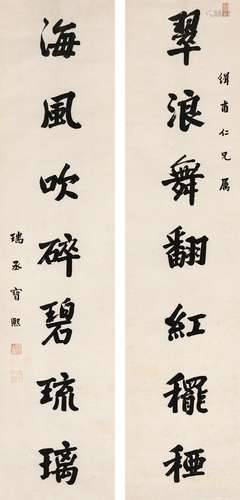 緝甫仁兄屬
翠浪舞翻紅穲稏
海風吹碎碧琉璃
瑞丞寶熙